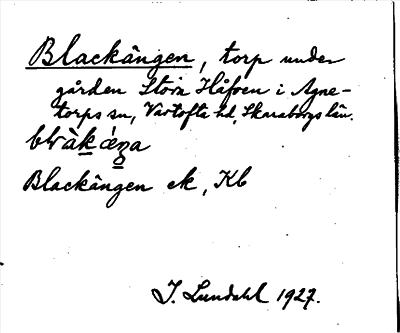 Blackängen, torp under
gården Stora Håfoen i Agne-
torps sn, Vartofta hd, Skaraborgs län.
Blackängen ek, Kb
I. Lundahl 1927.